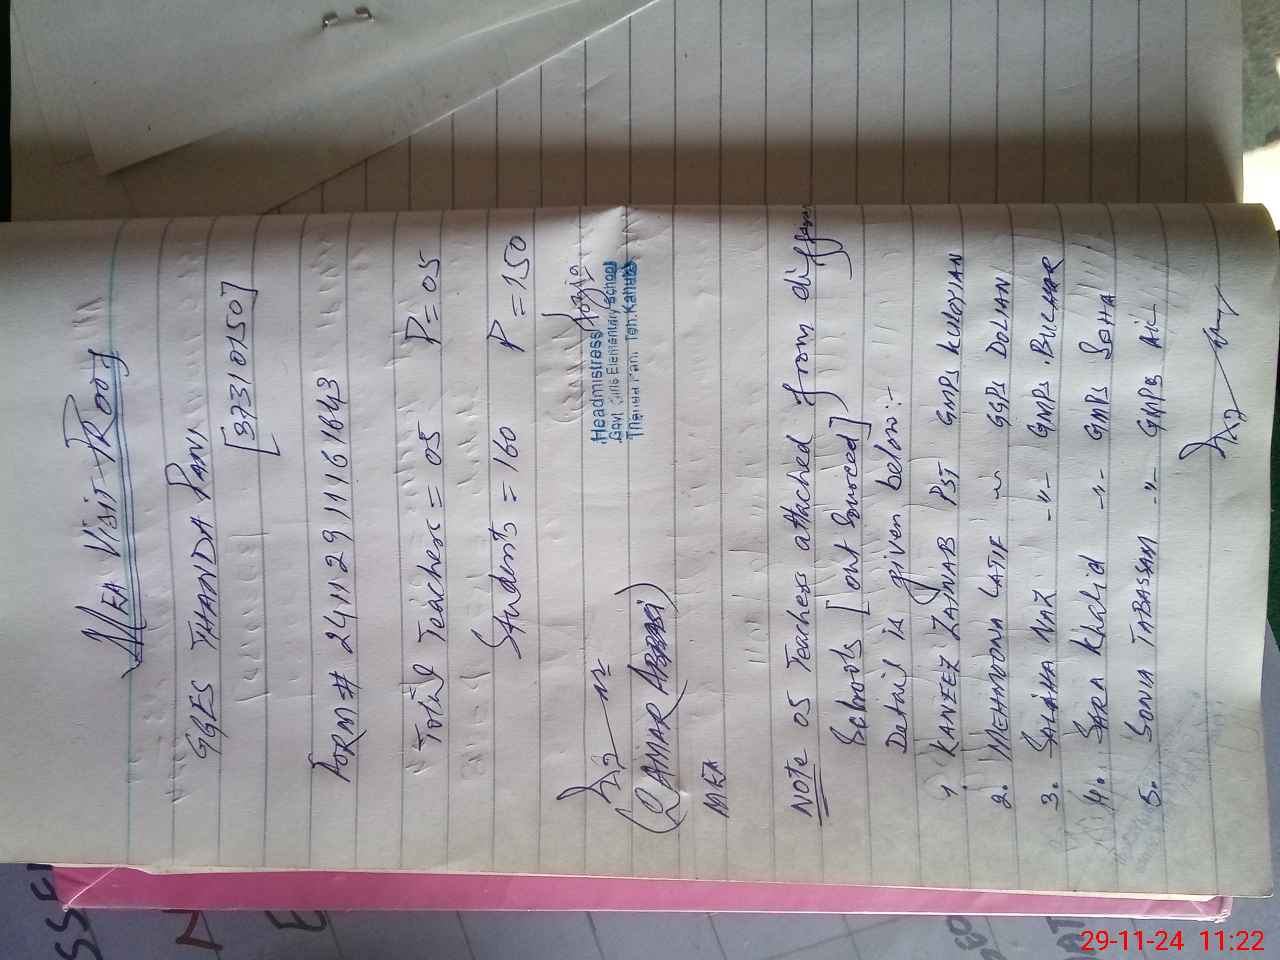 MEA VISIT PROOF
GGES THANDA PANI
[37310150]
FORM # 2411291116161643
Total Teachers = 05 P = 05
Students = 160 P = 150
Fozia
Headmistress
Govt Girls Elementary School
Thanda Pani Teh. Kahuta
(QAMAR ABBASI)
MEA
Note 05 Teachers attached from differ
Schools [out Sourced]
Detail is given below:-
1. KANEEZ ZAINAB PST GMPS
2. MEHMOONA LATIF -"- GGPS DOLIAN
3. SALIHA NAZ -"- GMPS
4. SARA Khalid -"- GMPS
5. SONIA TABASSAM -"- GMPS
29-11-24 11:22